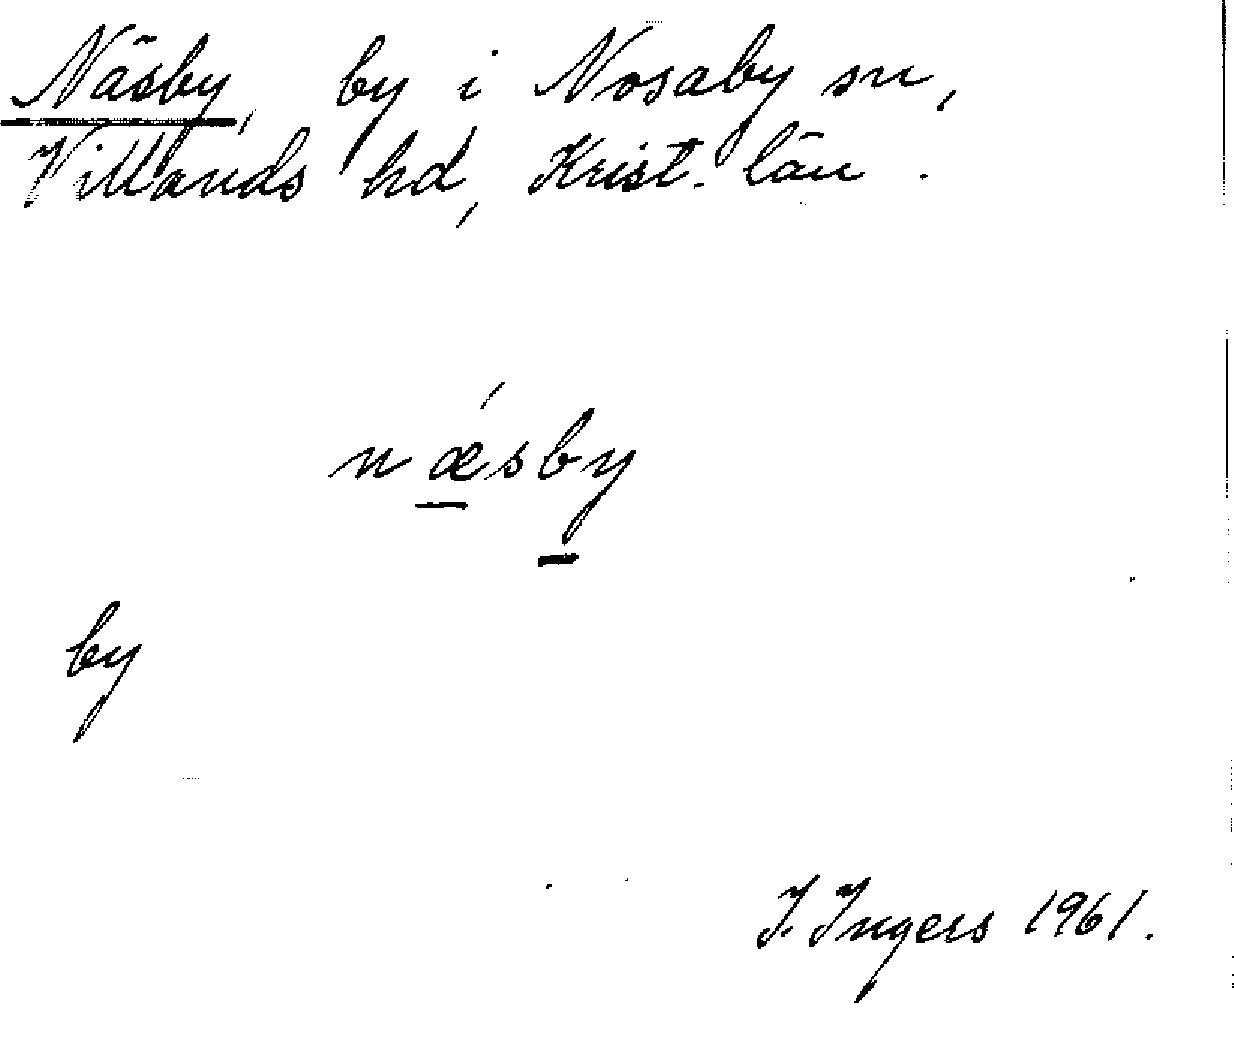 Näsby, by i Nosaby sn,
Villands hd, Krist. län.
nǽsby
by
I. Ingers 1961.